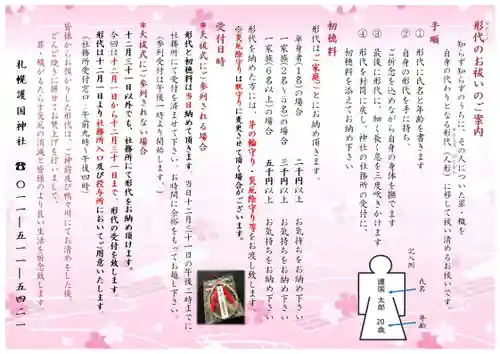 形代のお祓いのご案内
知らず知らずのうちに、その人についた罪・穢を
自身の代わりとなる形代（人形）に移して祓い清めるお祓いです。
手順
① 形代に氏名と年齢を書きます
② 自身の形代を手に持ち、
ご祈念を込めながら自身の身体を撫でます
③ 最後に形代に、細く長く息を三度吹きかけます
④ 形代を封筒に戻し、神社の社務所の受付に、
初穂料を添えてお納め下さい。
初穂料
形代はご家庭ごとにお納め頂きます。
単身者（１名）の場合 二千円以上 お気持ちをお納め下さい
一家族（２名〜５名）の場合 三千円以上 お気持ちをお納め下さい
一家族（６名以上）の場合 五千円以上 お気持ちをお納め下さい
形代を納めた方には、茅の輪守り・災厄除守り等をお渡し致します。
※災厄除守りは肌守りに変更させて頂く場合がございます。
受付日時
＊大祓式にご参列される場合
形代と初穂料は当日納めて頂きます。当日十二月三十一日の午後二時までに
社務所にて受付を済ませて下さい。お時間に余裕をもってお越し下さい。
（参列受付は午後一時より開始します。）
＊大祓式にご参列されない場合
十二月三十一日以外でも、社務所にて形代をお納め頂けます。
今回は十二月一日から十二月三十一日まで、形代の受付を致します。
形代は十二月一日より社務所入口及び授与所においてご用意いたします。
（社務所受付窓口 午前九時〜午後四時）
皆様からお預かりした形代は、ご神前及び特々川にてお清めをした後、
どんど焼きに併せてお焚上げを行いまして、
罪・穢がもたらす災厄の消滅と皆様のより良い生活を祈念致します。
札幌護国神社 ☎ 〇一一―五一一―五四二一
記入例
氏名
年齢
護国 太郎
20歳